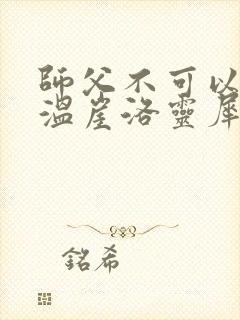 師父不可以
溫崖洛靈犀
銘希